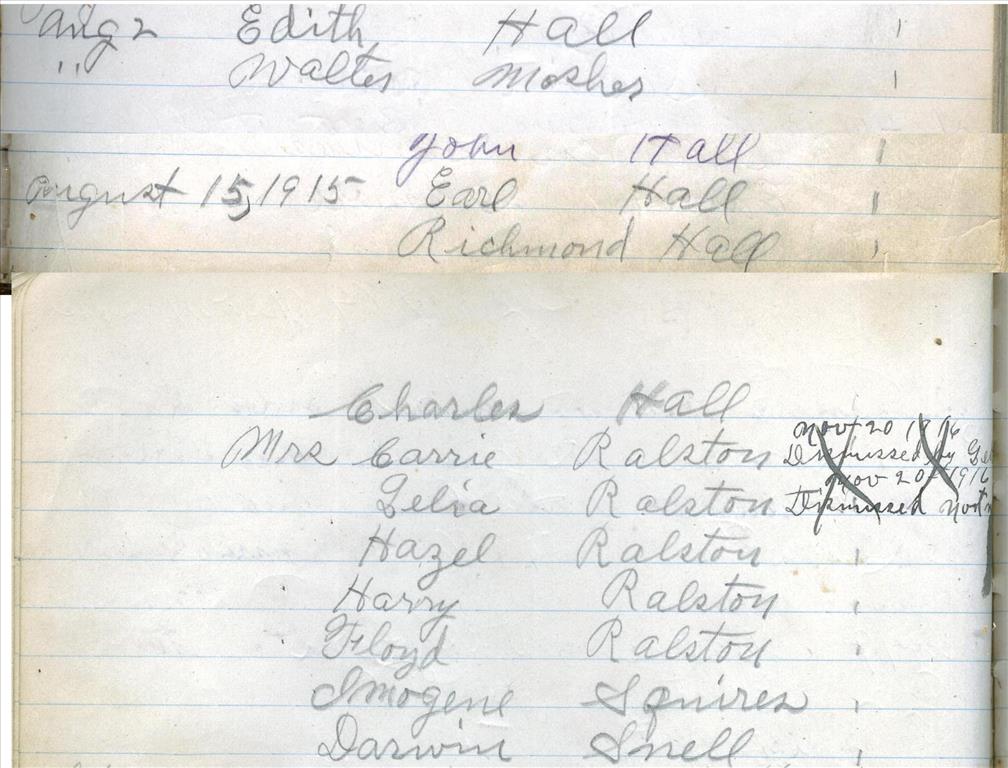 Aug 2 Edith Hall
" Walter Mosher
John Hall
August 15, 1915 Earl Hall
Richmond Hall
Charles Hall
Nov 20 1916
Mrs Carrie Ralston Dismissed by
Nov 20 1916
Lelia Ralston Dismissed
Hazel Ralston
Harry Ralston
Floyd Ralston
Imogene Squires
Darwin Snell